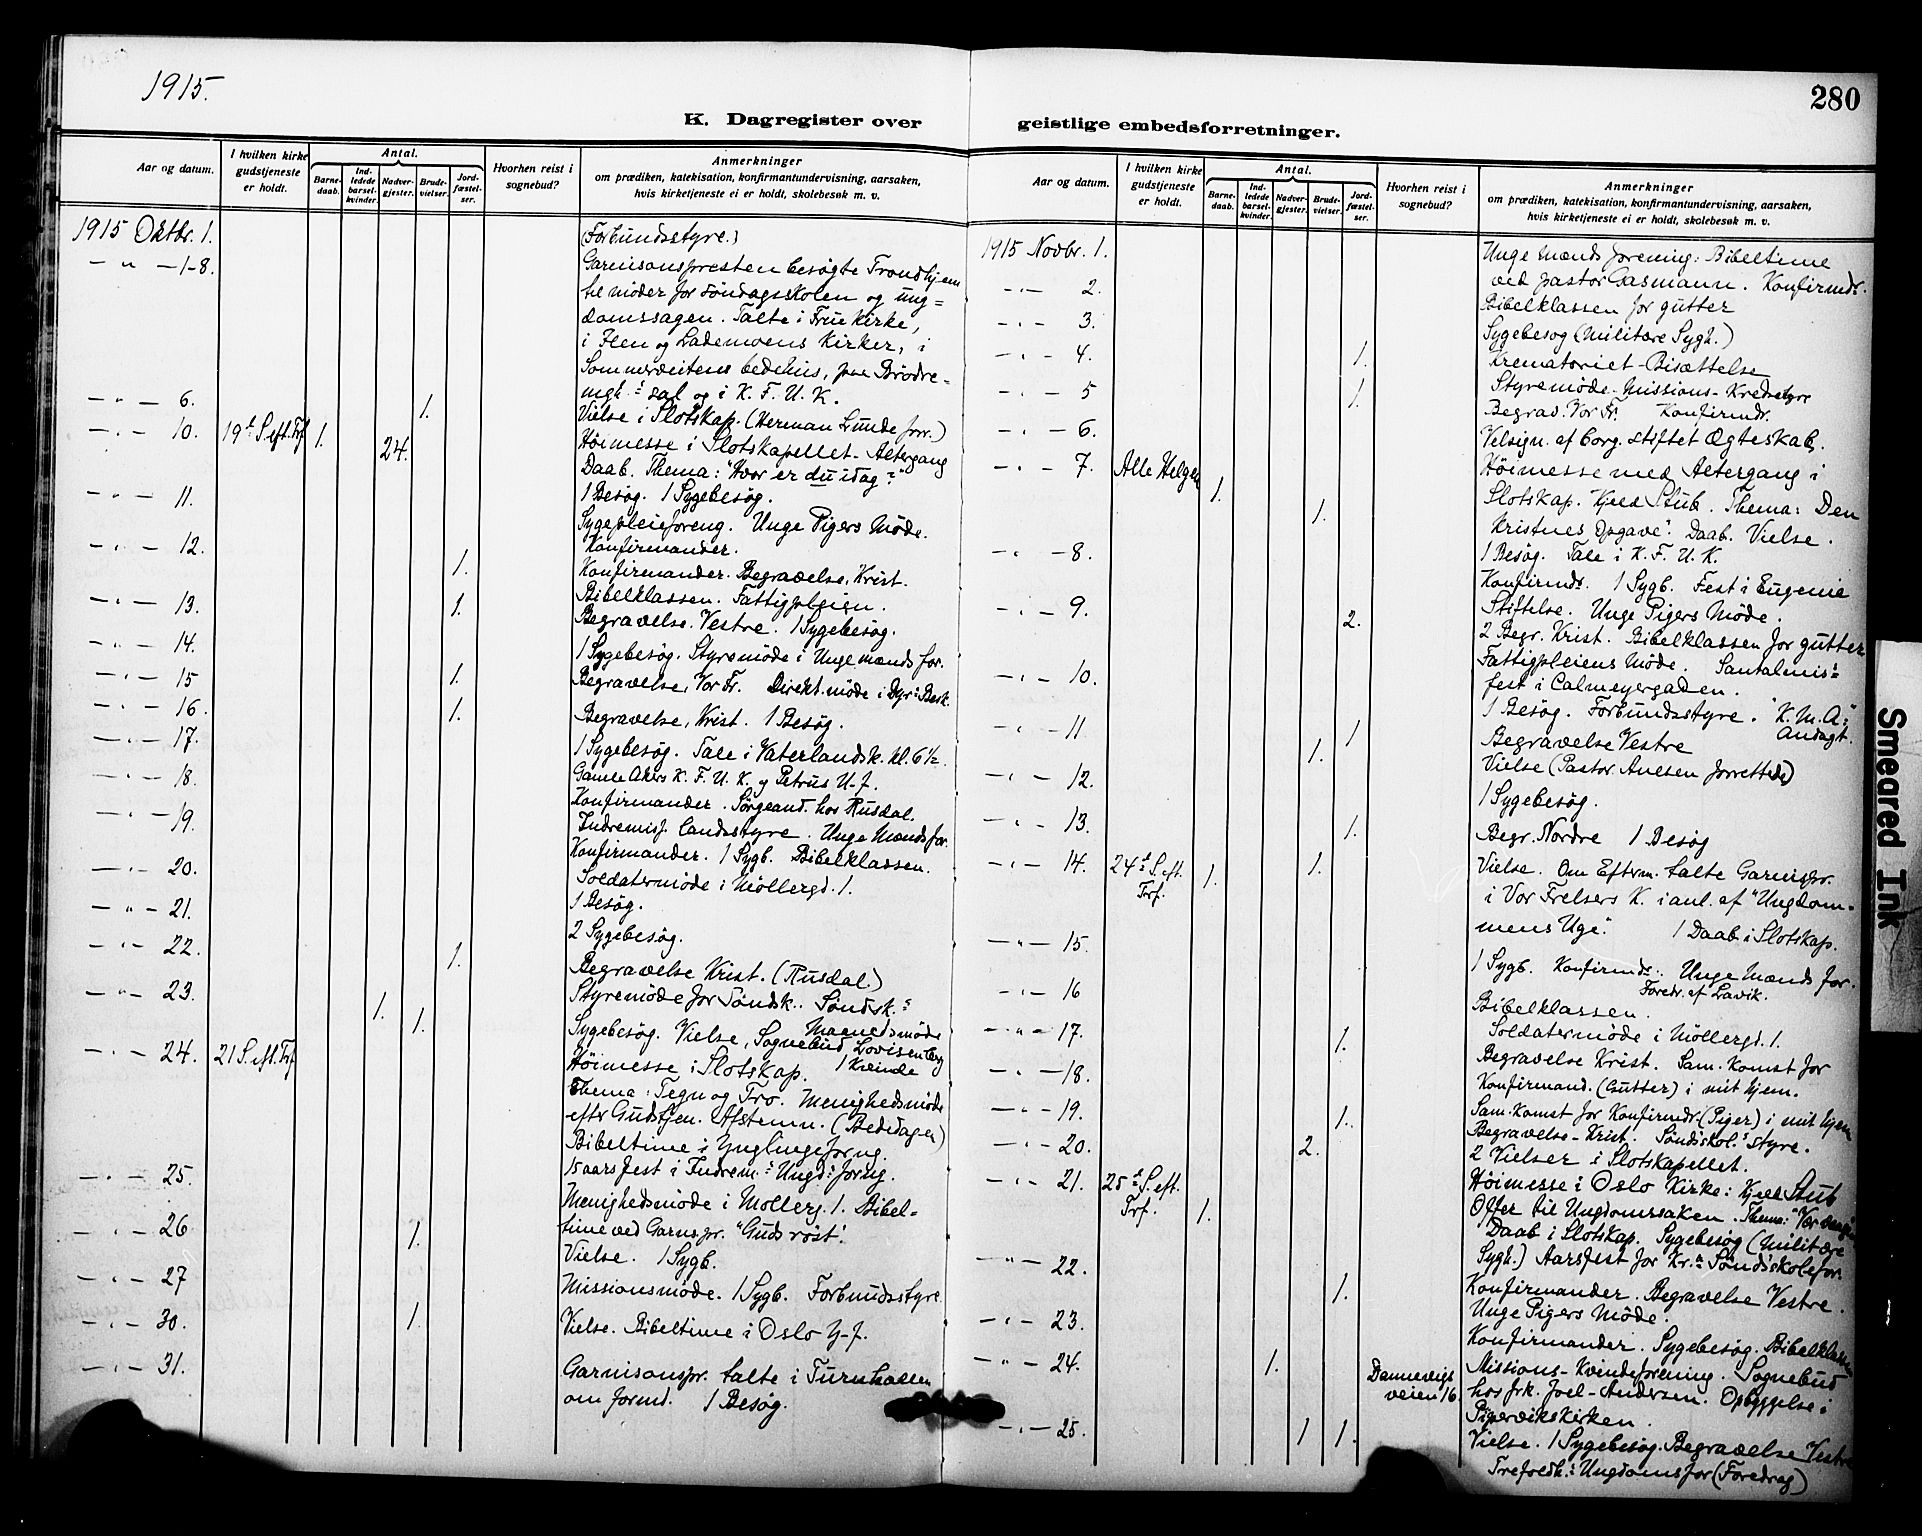 1915.
280
K. Dagregister over geistlige embedsforretninger.
Aar og datum.
I hvilken kirke gudstjeneste er holdt.
Antal.
Barnedaab.
Indledede barselkvinder.
Nadvergjester.
Brudevielser.
Jordfæstelser.
Hvorhen reist i sognebud?
Anmerkninger
om prædiken, katekisation, konfirmantundervisning, aarsaken,
hvis kirketjeneste ei er holdt, skolebesøk m. v.
1915 Oktbr. 1. (Forbundsstyre.)
— " — 1-8. Garnisonspresten besøgte Trondhjem
til møder for søndagsskolen og ung=
domssagen. Talte i Frue Kirke,
i Ilen og Lademoens Kirker, i
bedehus, paa Brødre-
mgh.s sal og i K. F. U. K.
— " — 6. 1. Vielse i Slotskap. (Herman Lunde forr.)
— " — 10. 19d S. eft. Trf. 1. 24. Høimesse i Slotskapellet - Altergang
Daab. Thema: "Hvor er du idag?"
1 Besøg. 1 Sygebesøg.
— " — 11. Sygepleieforeng. Unge Pigers Møde.
Konfirmander.
— " — 12. 1. Konfirmander. Begravelse, Krist.
Bibelklassen. Fattigpleien.
— " — 13. 1. Begravelse. Vestre. 1 Sygebesøg.
— " — 14. 1 Sygebesøg. Styremöde i Unge mænds for.
— " — 15 1. Begravelse, Vor Fr. Direkt. möde i Dyr: Besk.
— " — 16. 1. Begravelse, Krist. 1 Besøg.
— " — 17. 1 Sygebesøg. Tale i Vaterlandsk. kl. 6½
Gamle Akers K. F. U. K. og Petrus U-f.
— " — 18. Konfirmander. Sørgeand. hos Rusdal.
Indremisj. landsstyre. Unge Mænds for.
— " — 19. Konfirmander. 1 Sygb. Bibelklassen.
— " — 20. Soldatermøde i Møllergd. 1.
1 Besøg.
— " — 21. 2 Sygebesøg.
— " — 22. 1. Begravelse Krist. (Rusdal)
Styremöde for Søndk.. Søndsk.s
Maanedsmöde
— " — 23. 1. 1. Sygebesøg. Vielse, Sognebud Lovisenberg
1 Kvinde
— " — 24. 21 S. eft. Trf Høimesse i Slotskap.
Thema: Tegn og Tro. Menighedsmöde
efter Gudstjen. Afstemn. (Bededagen)
Bibeltime i Ynglingeforng.
15 aarsfest i Indrem.s Ungd: forng.
— " — 25. Menighedsmöde i Møllerg. 1. Bibel-
time ved Garnspr. "Guds røst".
— " — 26 1. Vielse. 1 Sygb.
— " — 27 Missionsmøde. 1 Sygb. Forbundsstyre
— " — 30. 1. Vielse. Bibeltime i Oslo Y-f.
— " — 31. Garnisonspr. talte i Turnhallen
om formd. 1 Besøg.
Aar og datum.
I hvilken kirke gudstjeneste er holdt.
Antal.
Barnedaab.
Indledede barselkvinder.
Nadvergjester.
Brudevielser.
Jordfæstelser.
Hvorhen reist i sognebud?
Anmerkninger
om prædiken, katekisation, konfirmantundervisning, aarsaken,
hvis kirketjeneste ei er holdt, skolebesøk m. v.
1915 Novbr. 1. Unge Mænds forening: Bibeltime
ved pastor Gasmann. Konfirmdr.
— " — 2. Bibelklassen for gutter
— " — 3. Sygebesøg (Militære Sygh.)
— " — 4. 1. Krematoriet - Bisættelse
Styremöde - Missions-
— " — 5 1. Begrav. Vor Fr. Konfirmdr.
— " — 6. Velsign. af borg. stiftet Ægteskab.
— " — 7. Alle Helgen 1. 1. Høimesse med Altergang i
Slotskap. Kjeld Stub. Thema: "Den
Kristnes Opgave". Daab. Vielse.
1 Besøg. Tale i K. F. U. K.
— " — 8. Konfirmdr. 1 Sygb. Fest i Eugenie
Stiftelse. Unge Pigers Møde.
— " — 9. 2. 2 Begr. Krist. Bibelklassen for gutter
Fattigpleiens Møde. Santalmis=
fest i Calmeyergaden.
— " — 10. 1 Besøg. Forbundsstyre. "K. M. A:"
Andagt.
— " — 11. 1. 1 Begravelse Vestre
Vielse (Pastor forrettede)
— " — 12. 1 Sygebesøg.
— " — 13. 1. Begr. Nordre 1 Besøg
— " — 14. 24d S. eft. Trf. 1. 1. Vielse. Om Efterm. talte Garnispr.
i Vor Frelsers K. i anl. af "Ungdom-
mens Uge". 1 Daab i Slotskap.
— " — 15. 1 Sygb. Konfirmdr. Unge Mænds for.
Foredr. af Lavik.
— " — 16 Bibelklassen.
— " — 17. Soldatermøde i Møllergd. 1.
— " — 18. 1. Begravelse Krist. Sam. Komst for
Konfirmand. (Gutter) i mit hjem.
— " — 19. 1. Sam. komst for Konfirmdr. (Piger) i mit hjem
Begravelse - Krist. Søndskol.s styre.
— " — 20. 2. 2 Vielser i Slotskapellet.
— " — 21. 25d S. eft. Trf. 1. Høimesse i Oslo Kirke: Kjeld Stub
Offer til Ungdomssaken. Thema:
Daab i Slotskap. Sygebesøg (Militære
Sygh.) Aarsfest for Kr.a Søndskolefor.
— " — 22. 1. Konfirmander. Begravelse Vestre.
Unge Pigers Møde.
— " — 23. Konfirmander. Sygebesøg. Bibelklassen
— " — 24. 1. Dannevigs
veien 16. Missions-Kvindeforening. Sognebud
hos frk. Joel-Andersen. Opbyggelse i
Pipervikskirken.
— " — 25. 1 1. Vielse. 1 Sygebesøg. Begravelse Vestre
Trefoldh.s Ungdomsfor (Foredrag)
Smeared Ink